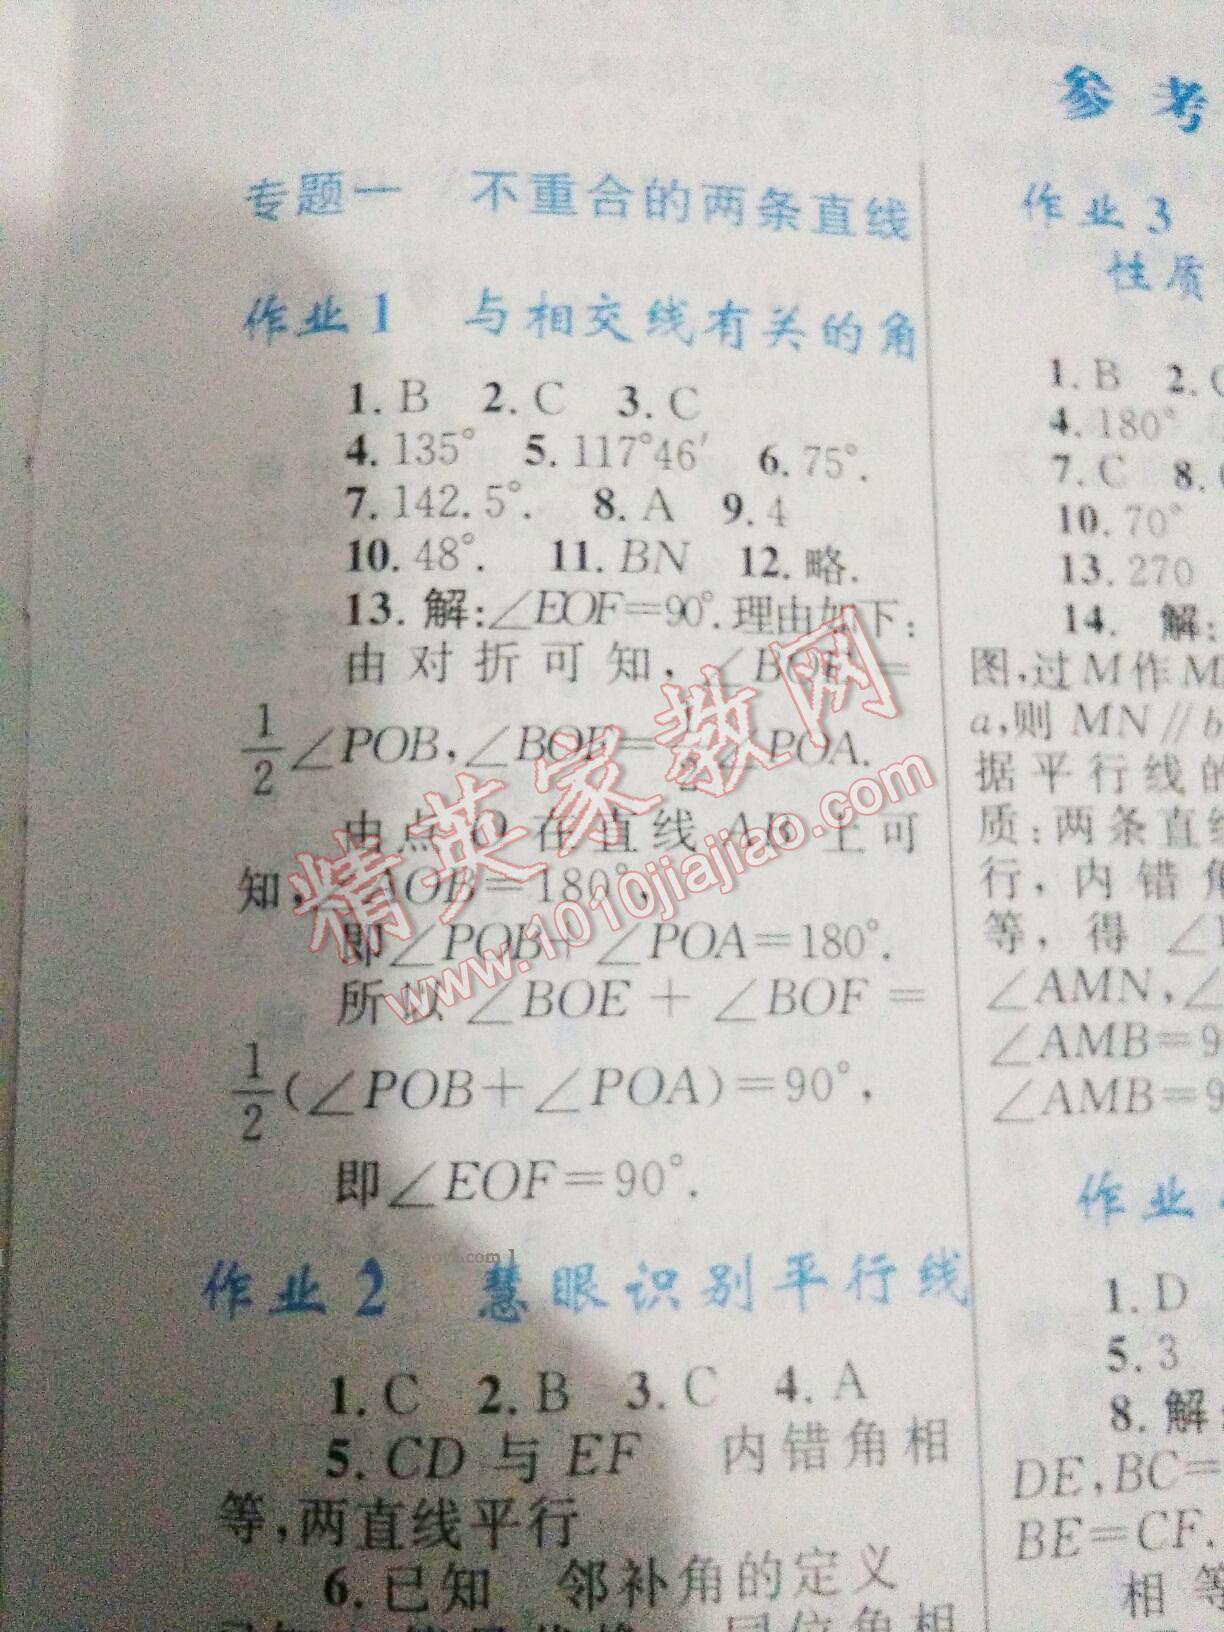 参考
专题一 不重合的两条直线
作业1 与相交线有关的角
1.B 2.C 3.C
4.135° 5.117°46′ 6.75°.
7.142.5°. 8.A 9.4
10.48°. 11.BN 12.略.
13.解:∠EOF=90°.理由如下:
由对折可知,∠BOE=
1/2∠POB,∠BOF=1/2∠POA.
由点O在直线AB上可
知,∠AOB=180°,
即∠POB+∠POA=180°.
所以∠BOE+∠BOF=
1/2(∠POB+∠POA)=90°,
即∠EOF=90°.
作业2 慧眼识别平行线
1.C 2.B 3.C 4.A
5.CD与EF 内错角相
等,两直线平行
6.已知 邻补角的定义
同位角相
作业3
性质
1.B 2.
4.180°
7.C 8.
10.70°
13.270
14. 解:
图,过M作M
a,则MN∥b
据平行线的
质:两条直线
行,内错角
等,得∠
∠AMN,∠
∠AMB=9
∠AMB=9
作业
1.D
5.3
8.解
DE,BC=
BE=CF.
相等
精英家教网
www.1010jiajiao.com